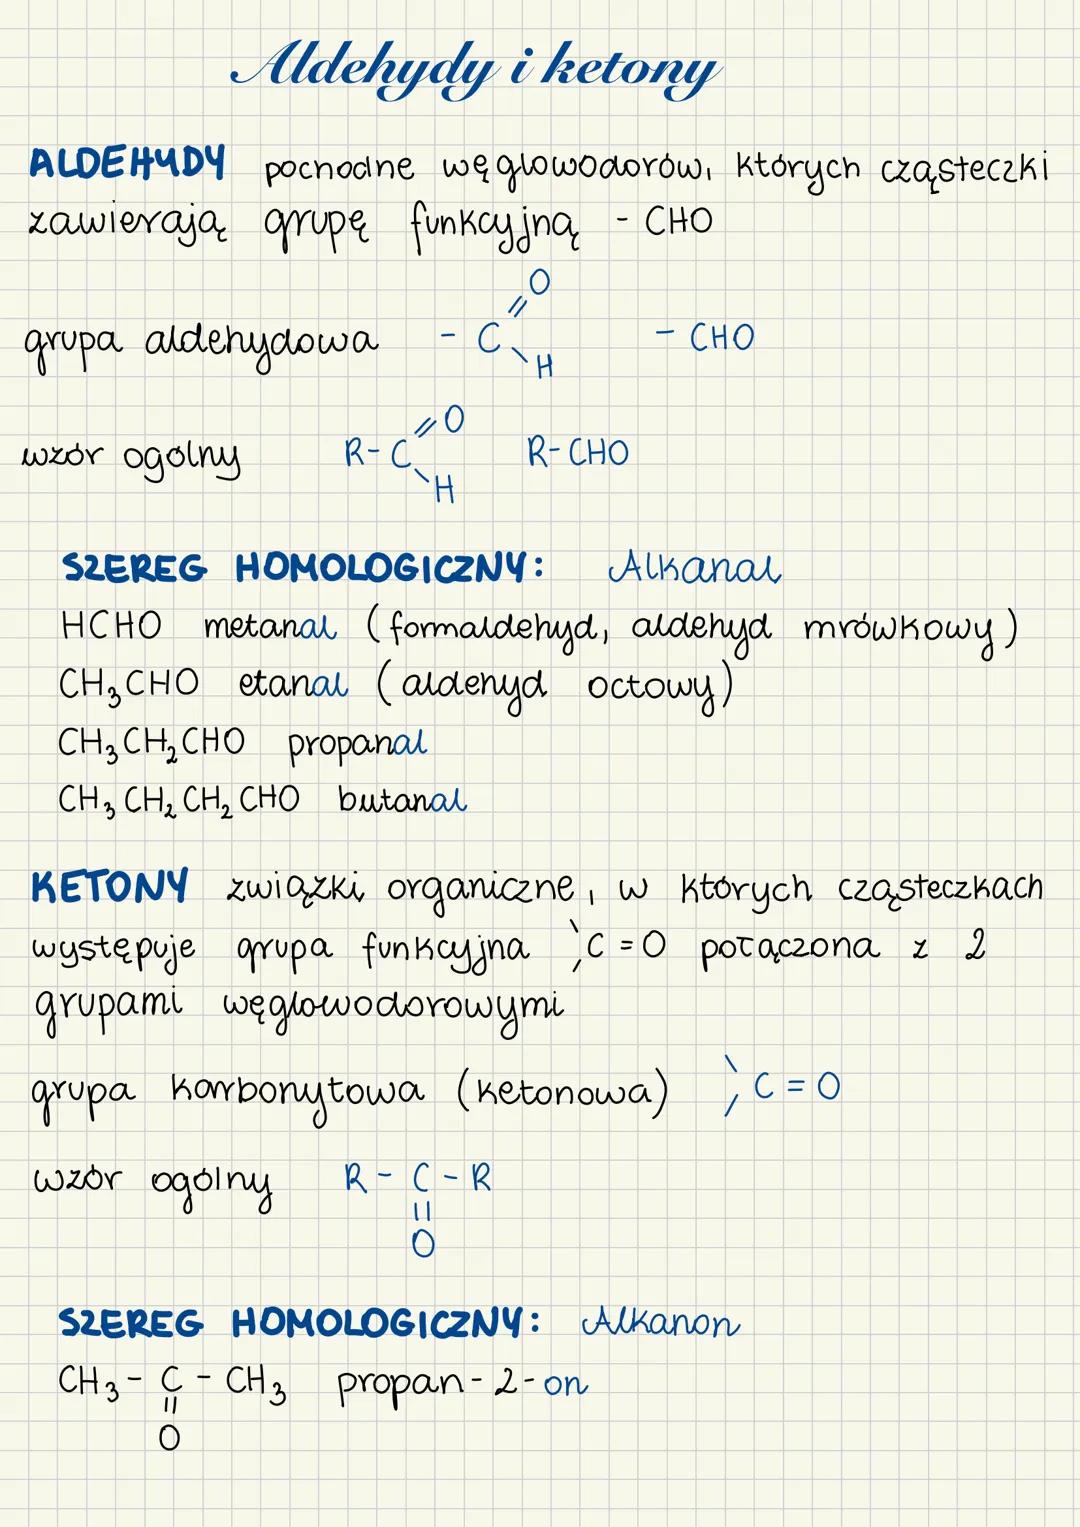 Aldehydy i ketony
ALDEHYDY pochodne węglowodorów, których cząsteczki
zawierają grupę funkcyjną - CHO
O
grupa aldehydowa - C - CHO
H
O
wzór ogólny R - C R - CHO
H
SZEREG HOMOLOGICZNY: Alkanal
HCHO metanal (formaldehyd, aldehyd mrówkowy)
CH₃CHO etanal (aldehyd octowy)
CH₃CH₂CHO propanal
CH₃CH₂CH₂CHO butanal
KETONY związki organiczne, w których cząsteczkach
występuje grupa funkcyjna C = O połączona z 2
grupami węglowodorowymi
grupa karbonylowa (ketonowa) C = O
wzór ogólny R - C - R
O
SZEREG HOMOLOGICZNY: Alkanon
CH₃ - C - CH₃ propan-2-on
O